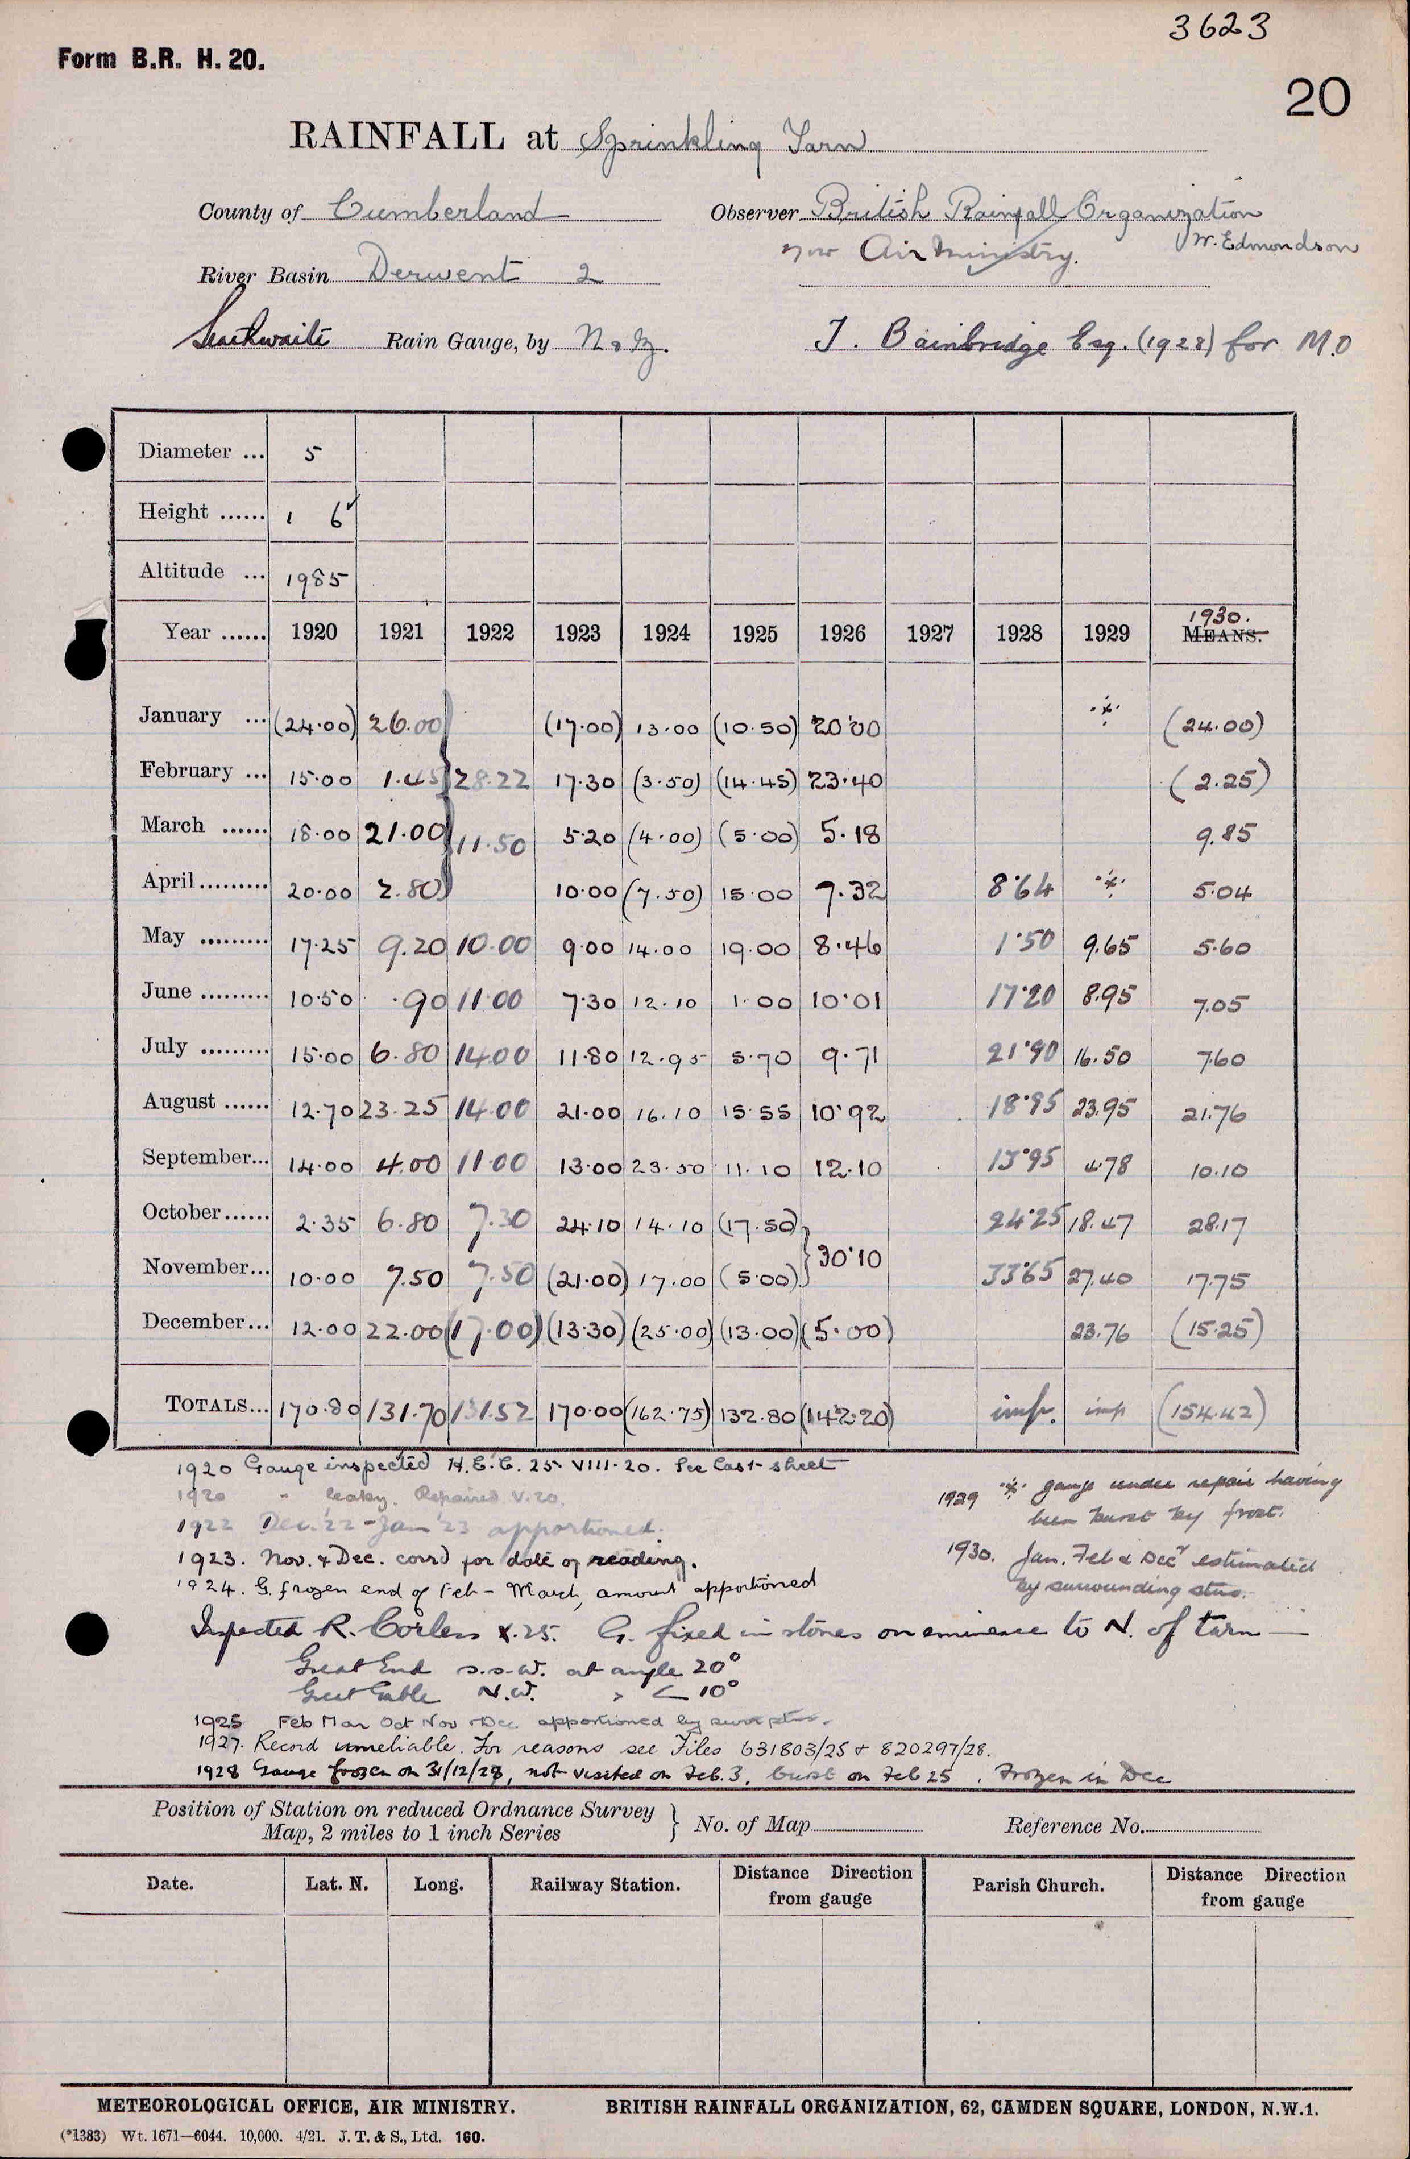 3623
Form B.R. H. 20.
20
RAINFALL at Sprinkling Tarn
County of Cumberland Observer British Rainfall Organization
now Air Ministry. W. Edmondson
River Basin Derwent 2
Seathwaite Rain Gauge, by N & Z. J. Bainbridge Esq. (1928) for M.O
Diameter ... 5
Height ...... 1 6
Altitude ... 1985
1930.
Year ...... 1920 1921 1922 1923 1924 1925 1926 1927 1928 1929 MEANS.
January ... (24.00) 26.00 (17.00) 13.00 (10.50) 20.00 * (24.00)
February ... 15.00 1.45 28.22 17.30 (3.50) (14.45) 23.40 (2.25)
March ...... 18.00 21.00 11.50 5.20 (4.00) (5.00) 5.18 9.85
April ......... 20.00 2.80 10.00 (7.50) 15.00 7.32 8.64 * 5.04
May ......... 17.25 9.20 10.00 9.00 14.00 19.00 8.46 1.50 9.65 5.60
June ......... 10.50 .90 11.00 7.30 12.10 1.00 10.01 17.20 8.95 7.05
July ......... 15.00 6.80 14.00 11.80 12.95 5.70 9.71 21.90 16.50 7.60
August ...... 12.70 23.25 14.00 21.00 16.10 15.55 10.92 18.95 23.95 21.76
September... 14.00 4.00 11.00 13.00 23.50 11.10 12.10 13.95 4.78 10.10
October...... 2.35 6.80 7.30 24.10 14.10 (17.50) 24.25 18.47 28.17
November... 10.00 7.50 7.50 (21.00) 17.00 (5.00) } 30.10 33.65 27.40 17.75
December... 12.00 22.00 (17.00) (13.30) (25.00) (13.00) (5.00) 23.76 (15.25)
TOTALS... 170.80 131.70 131.52 170.00 (162.75) 132.80 (142.20) imp. imp (154.42)
1920 Gauge inspected H.E.C. 25 VIII.20. See last sheet
1920 " leaky. Repaired V.20.
1929 * gauge under repair having
been burst by frost.
1922 Dec. '22 - Jan '23 apportioned.
1923. Nov. & Dec. corrd for date of reading.
1930. Jan, Feb & Decr estimated
by surrounding stns.
1924. G. frozen end of Feb - March, amount apportioned
Inspected R. Corless X.25. G. fixed in stones on eminence to N. of tarn
Great End S.S.W. at angle 20°
Great Gable N.W. " < 10°
1925 Feb Mar Oct Nov & Dec apportioned by
1927. Record unreliable. For reasons see Files 631803/25 & 820297/28.
1928 Gauge frozen on 31/12/28, not visited on Feb. 3, burst on Feb 25. Frozen in Dec
Position of Station on reduced Ordnance Survey
Map, 2 miles to 1 inch Series } No. of Map Reference No.
Date. Lat. N. Long. Railway Station. Distance Direction from gauge Parish Church. Distance Direction from gauge
METEOROLOGICAL OFFICE, AIR MINISTRY. BRITISH RAINFALL ORGANIZATION, 62, CAMDEN SQUARE, LONDON, N.W.1.
(*1383) Wt. 1671—6044. 10,000. 4/21. J. T. & S., Ltd. 160.